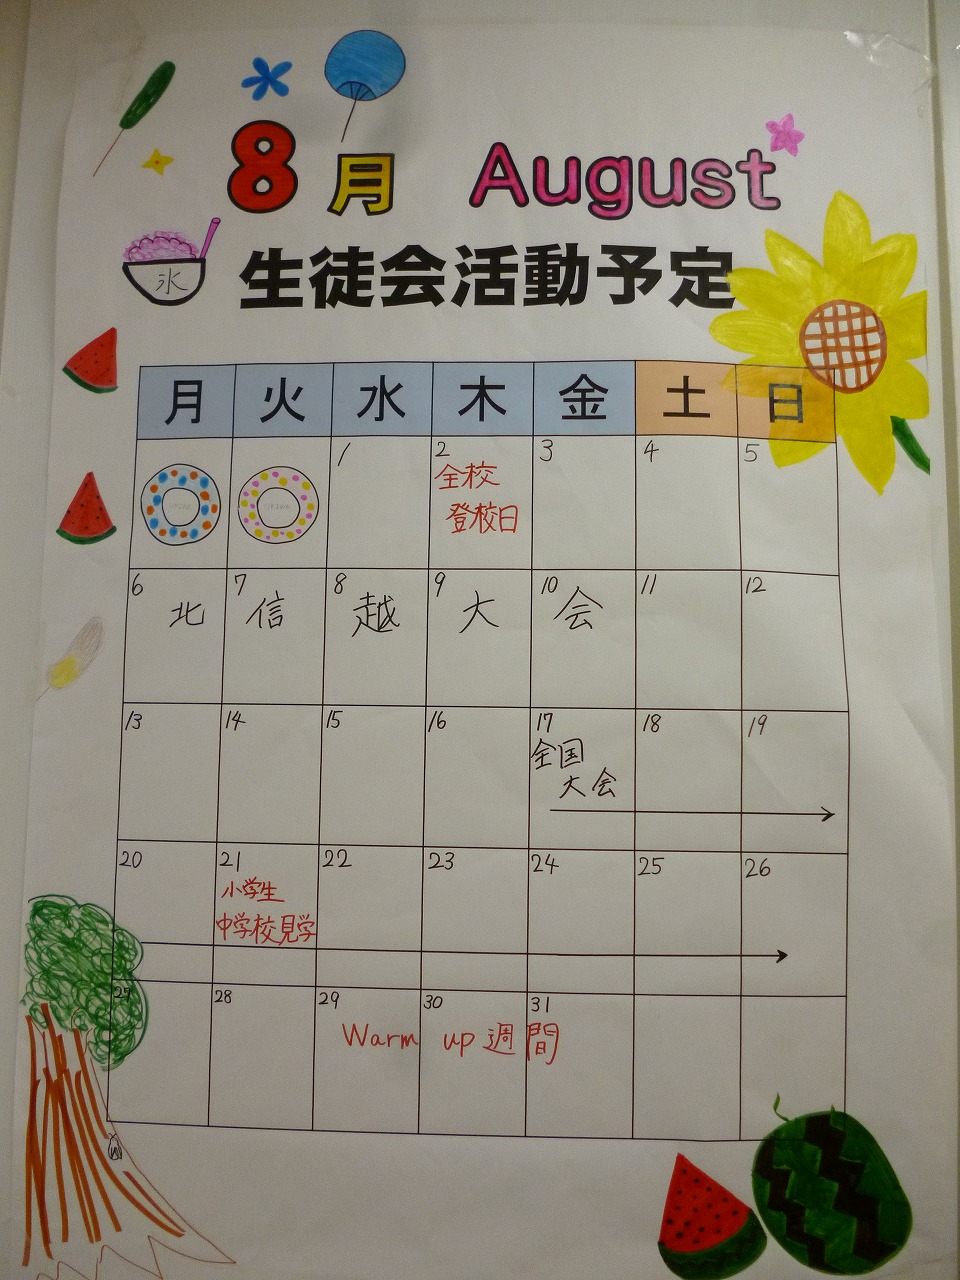 8月 August
氷
生徒会活動予定
月 火 水 木 金 土 日
1 2 3 4 5
全校
登校日
6 7 8 9 10 11 12
北 信 越 大 会
13 14 15 16 17 18 19
全国
大会
20 21 22 23 24 25 26
小学生
中学校見学
27 28 29 30 31
Warm up 週間